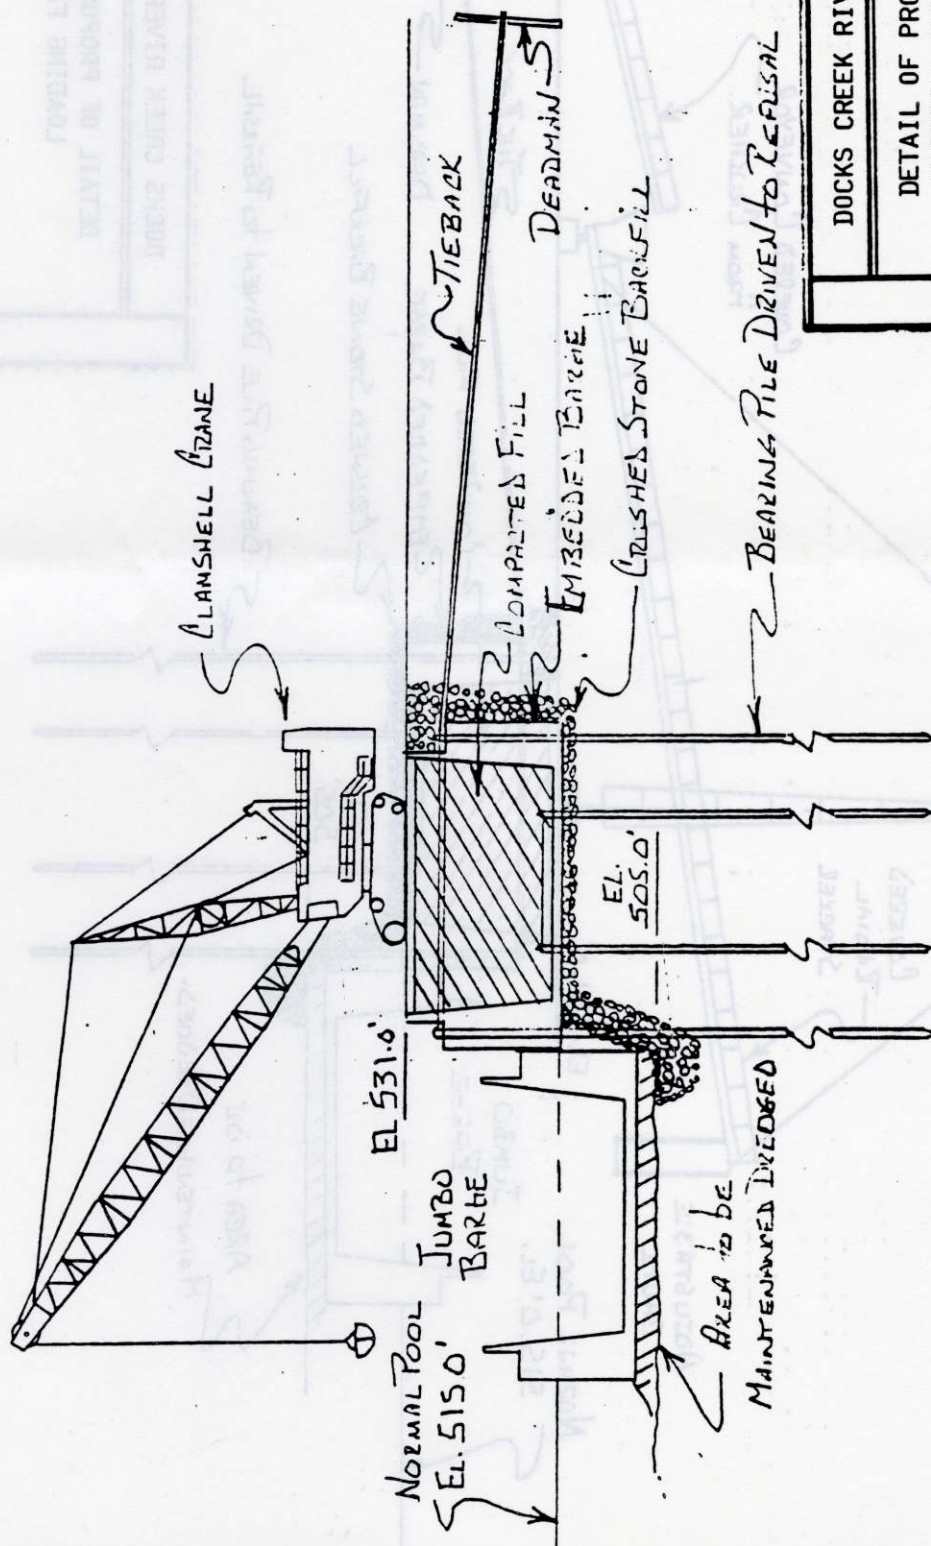 CLAMSHELL CRANE
TIEBACK
DEADMAN
COMPACTED FILL
EMBEDDED BARGE
CRUSHED STONE BACKFILL
BEARING PILE DRIVEN to REFUSAL
EL 531.0'
EL.
505.0'
NORMAL POOL
EL. 515.0'
JUMBO
BARGE
AREA to be
MAINTENANCED DREDGED
DOCKS CREEK RIV
DETAIL OF PRO